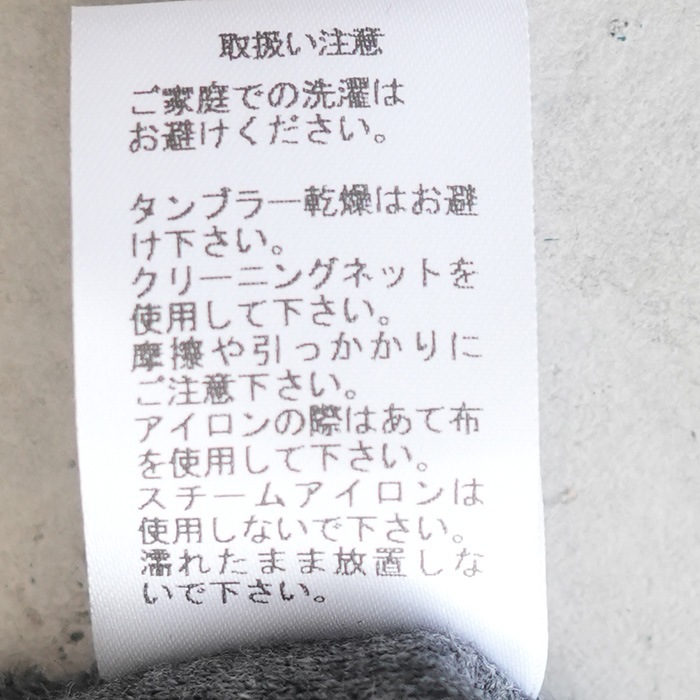 取扱い注意
ご家庭での洗濯は
お避けください。
タンブラー乾燥はお避
け下さい。
クリーニングネットを
使用して下さい。
摩擦や引っかかりに
ご注意下さい。
アイロンの際はあて布
を使用して下さい。
スチームアイロンは
使用しないで下さい。
濡れたまま放置しな
いで下さい。